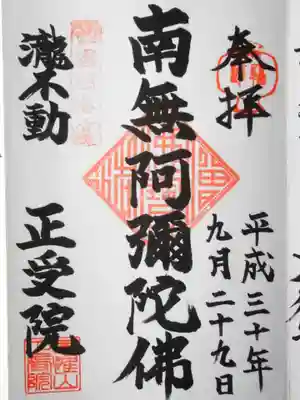 奉拝
平成三十年
九月二十九日
南無阿彌陀佛
瀧不動
正受院